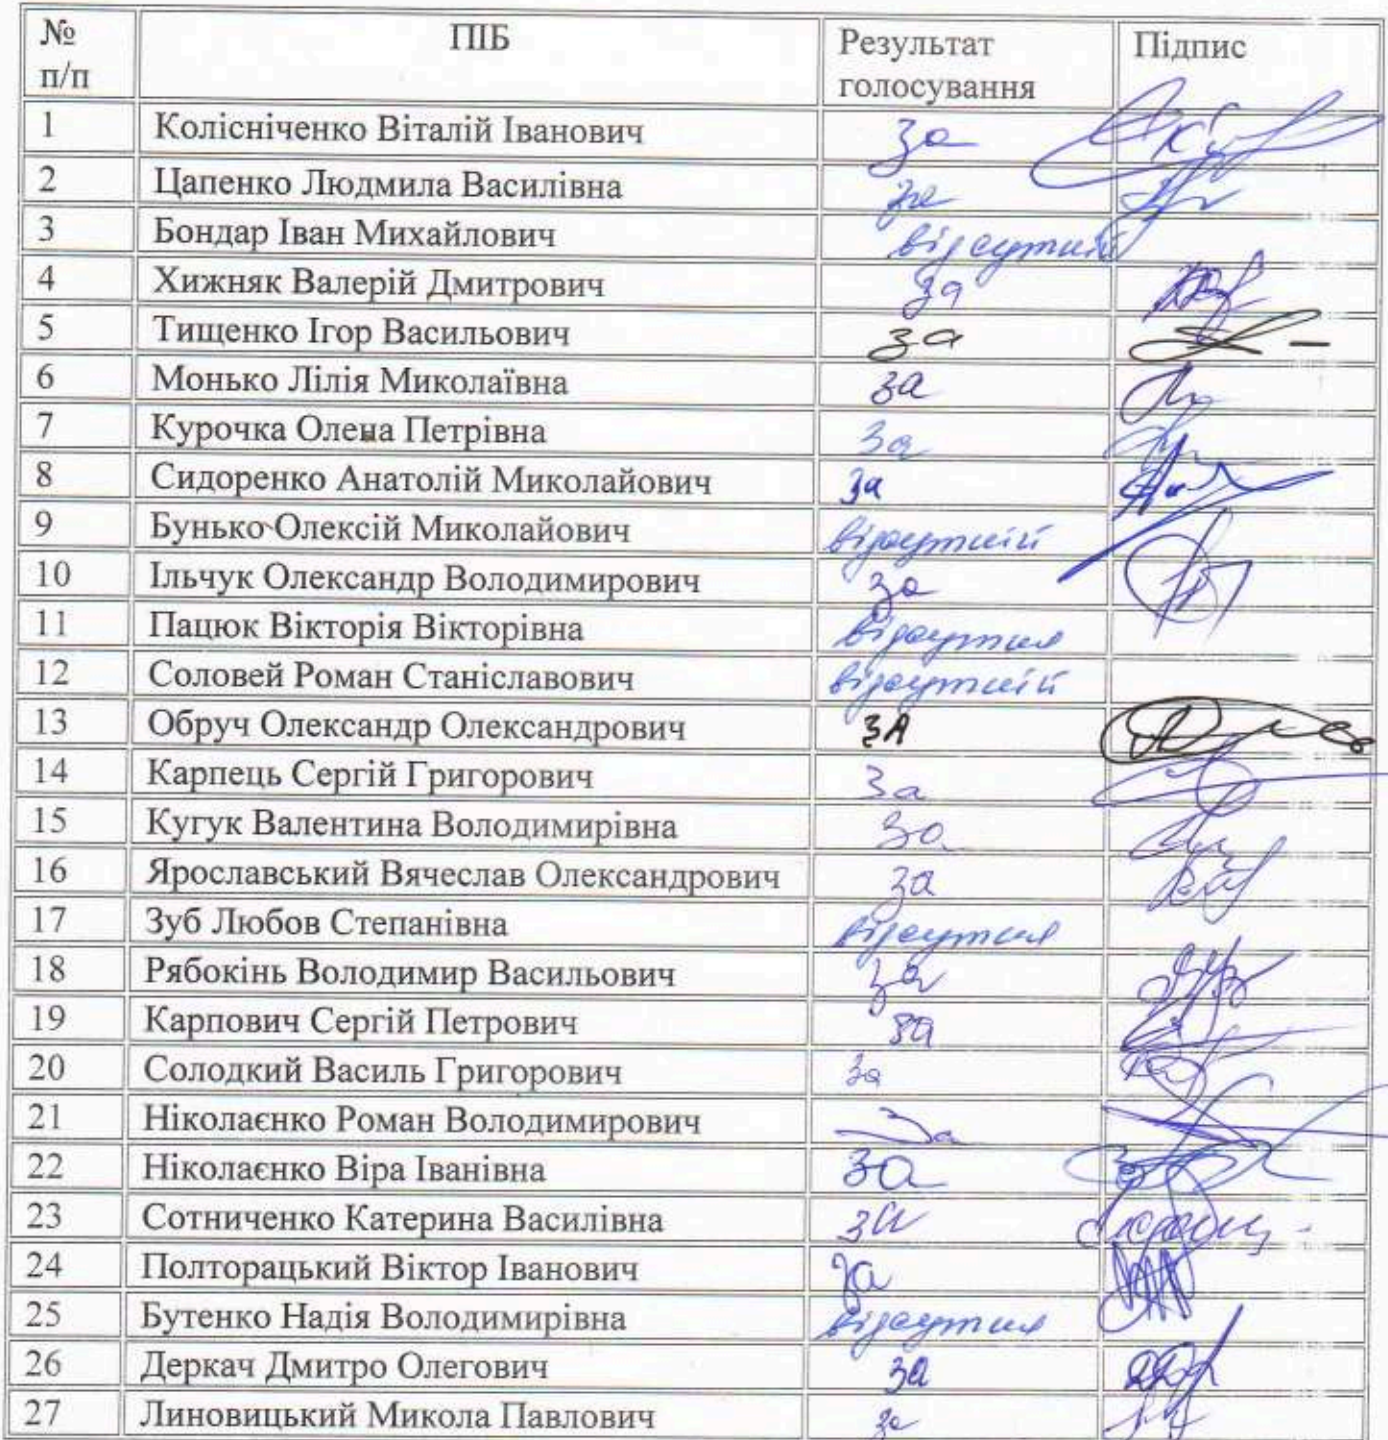 № п/п ПІБ Результат голосування Підпис
1 Колісніченко Віталій Іванович за
2 Цапенко Людмила Василівна за
3 Бондар Іван Михайлович відсутній
4 Хижняк Валерій Дмитрович за
5 Тищенко Ігор Васильович за
6 Монько Лілія Миколаївна за
7 Курочка Олена Петрівна за
8 Сидоренко Анатолій Миколайович за
9 Бунько Олексій Миколайович відсутній
10 Ільчук Олександр Володимирович за
11 Пацюк Вікторія Вікторівна відсутня
12 Соловей Роман Станіславович відсутній
13 Обруч Олександр Олександрович за
14 Карпець Сергій Григорович за
15 Кугук Валентина Володимирівна за
16 Ярославський Вячеслав Олександрович за
17 Зуб Любов Степанівна відсутня
18 Рябокінь Володимир Васильович за
19 Карпович Сергій Петрович за
20 Солодкий Василь Григорович за
21 Ніколаєнко Роман Володимирович За
22 Ніколаєнко Віра Іванівна за
23 Сотниченко Катерина Василівна за
24 Полторацький Віктор Іванович за
25 Бутенко Надія Володимирівна відсутня
26 Деркач Дмитро Олегович за
27 Линовицький Микола Павлович за